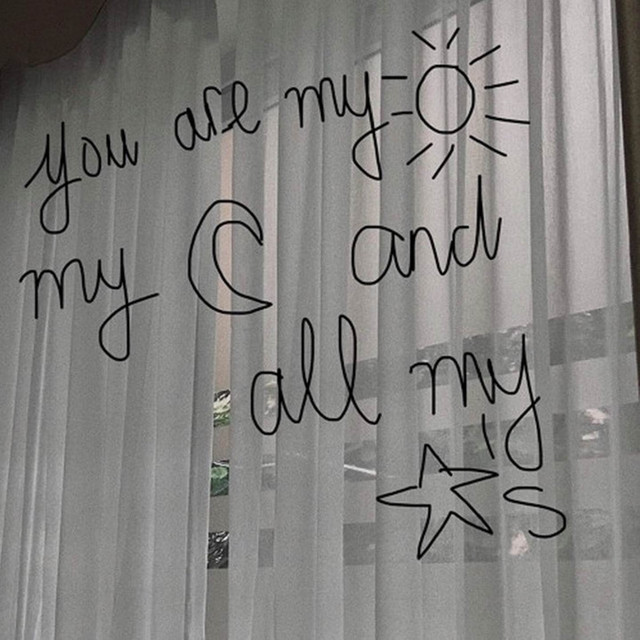 you are my ☀
my ☾ and
all my
☆s